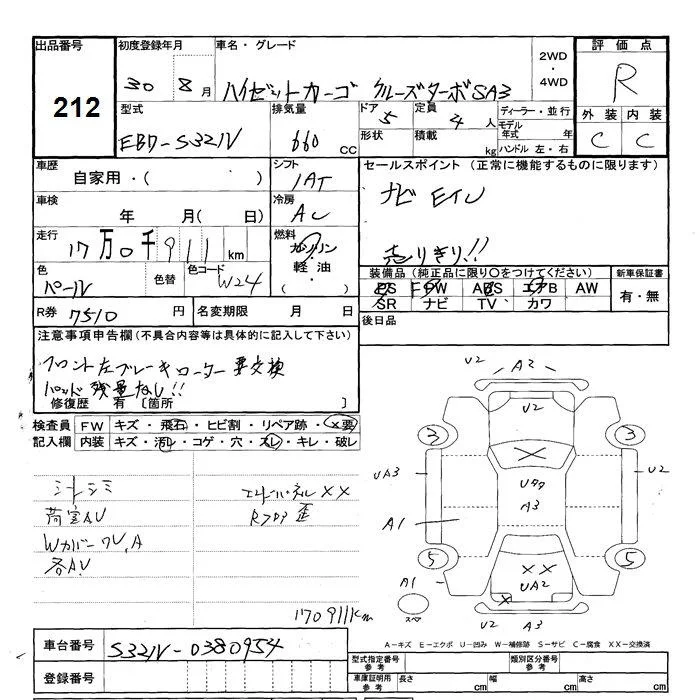 出品番号 初度登録年月 車名・グレード 2WD・4WD 評価点
212 30 8月 ハイゼットカーゴ クルーズターボSA3 R
型式 排気量 ドア 定員 ディーラー・並行 外装 内装
EBD-S321V 660 CC 5 4人 モデル年式 年 C C
形状 積載 kg ハンドル 左・右
車歴 シフト セールスポイント (正常に機能するものに限ります)
自家用・( ) IAT ナビ Eイレ
車検 冷房
年 月( 日) AC
走行 燃料
17万0千911km ガソリン 軽油・( ) 売りきり!!
色 色替 色コード 装備品(純正品に限り○をつけてください) 新車保証書
パール W24 PS PW ABS エアB AW 有・無
SR ナビ TV カワ
R券 7510 円 名変期限 月 日 後日品
注意事項申告欄(不具合内容等は具体的に記入して下さい)
フロント左ブレーキローター要交換
パッド残量なし!!
修復歴 有 〔箇所 〕
検査員 FW キズ・飛石・ヒビ割・リペア跡・X要
記入欄 内装 キズ・汚レ・コゲ・穴・スレ・キレ・破レ
シートシミ エンドパネルXX
荷室AU Rフロア歪
Wカバーワレ,A
各A,U
170911km
U2 A2
U2
3 3
UA3 U2
A3
A1
5 5
XX
UA2
A1
X
スペア
U2 A3
A-キズ E-エクボ U-凹み W-補修跡 S-サビ C-腐食 XX-交換済
車台番号 S321V-0380954
登録番号
型式指定番号 参考 類別区分番号 参考
車庫証明用 参考 長さ cm 幅 cm 高さ cm